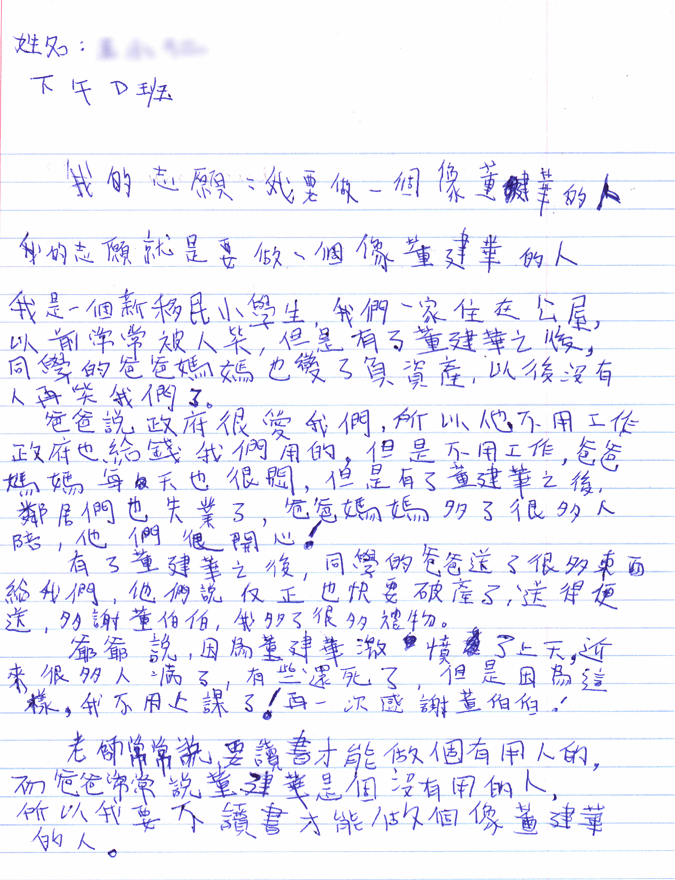 姓名：
下午D班
我的志願：我要做一個像董建華的人
我的志願就是要做一個像董建華的人
我是一個新移民小學生，我們一家住在公屋，
以前常常被人笑，但是有了董建華之後，
同學的爸爸媽媽也變了負資產，以後沒有
人再笑我們了。
爸爸說政府很愛我們，所以他不用工作
政府也給錢我們用的，但是不用工作，爸爸
媽媽每天也很悶，但是有了董建華之後，
鄰居們也失業了，爸爸媽媽多了很多人
陪，他們很開心！
有了董建華之後，同學的爸爸送了很多東西
給我們，他們說反正也快要破產了，送得便
送，多謝董伯伯，我多了很多禮物。
爺爺說，因為董建華激憤了上天，近
來很多人滿了，有些還死了，但是因為這
樣，我不用上課了！再一次感謝董伯伯！
老師常常說，要讀書才能做個有用人的，
而爸爸常常說董建華是個沒有用的人，
所以我要不讀書才能做個像董建華
的人。